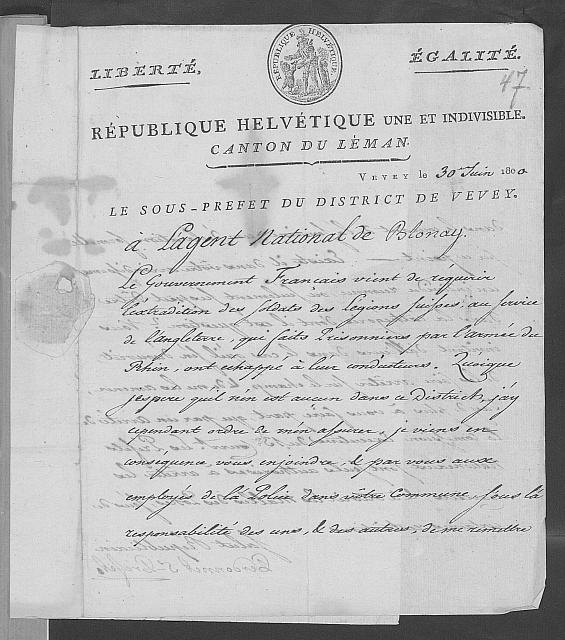 LIBERTÉ,
RÉPUBLIQUE HELVÉTIQUE
ÉGALITÉ.
47
RÉPUBLIQUE HELVÉTIQUE UNE ET INDIVISIBLE.
CANTON DU LÉMAN.
VEVEY le 30 Juin 1800
LE SOUS-PREFET DU DISTRICT DE VEVEY.
à L'agent National de Blonay.
Le Gouvernement Français vient de requérir
l'extradition des Soldats des Légions Suisses au Service
de l'Angleterre, qui faits Prisonniers par l'armée du
Rhin, ont echappé à leur conducteurs. Quoique
j'espere qu'il n'en est aucun dans ce District, j'ay
cependant ordre de m'en assurer. je viens en
conséquence, vous enjoindre, & par vous aux
employés de la Police dans vôtre Commune, sous la
responsabilité des uns, & des autres, de me remettre